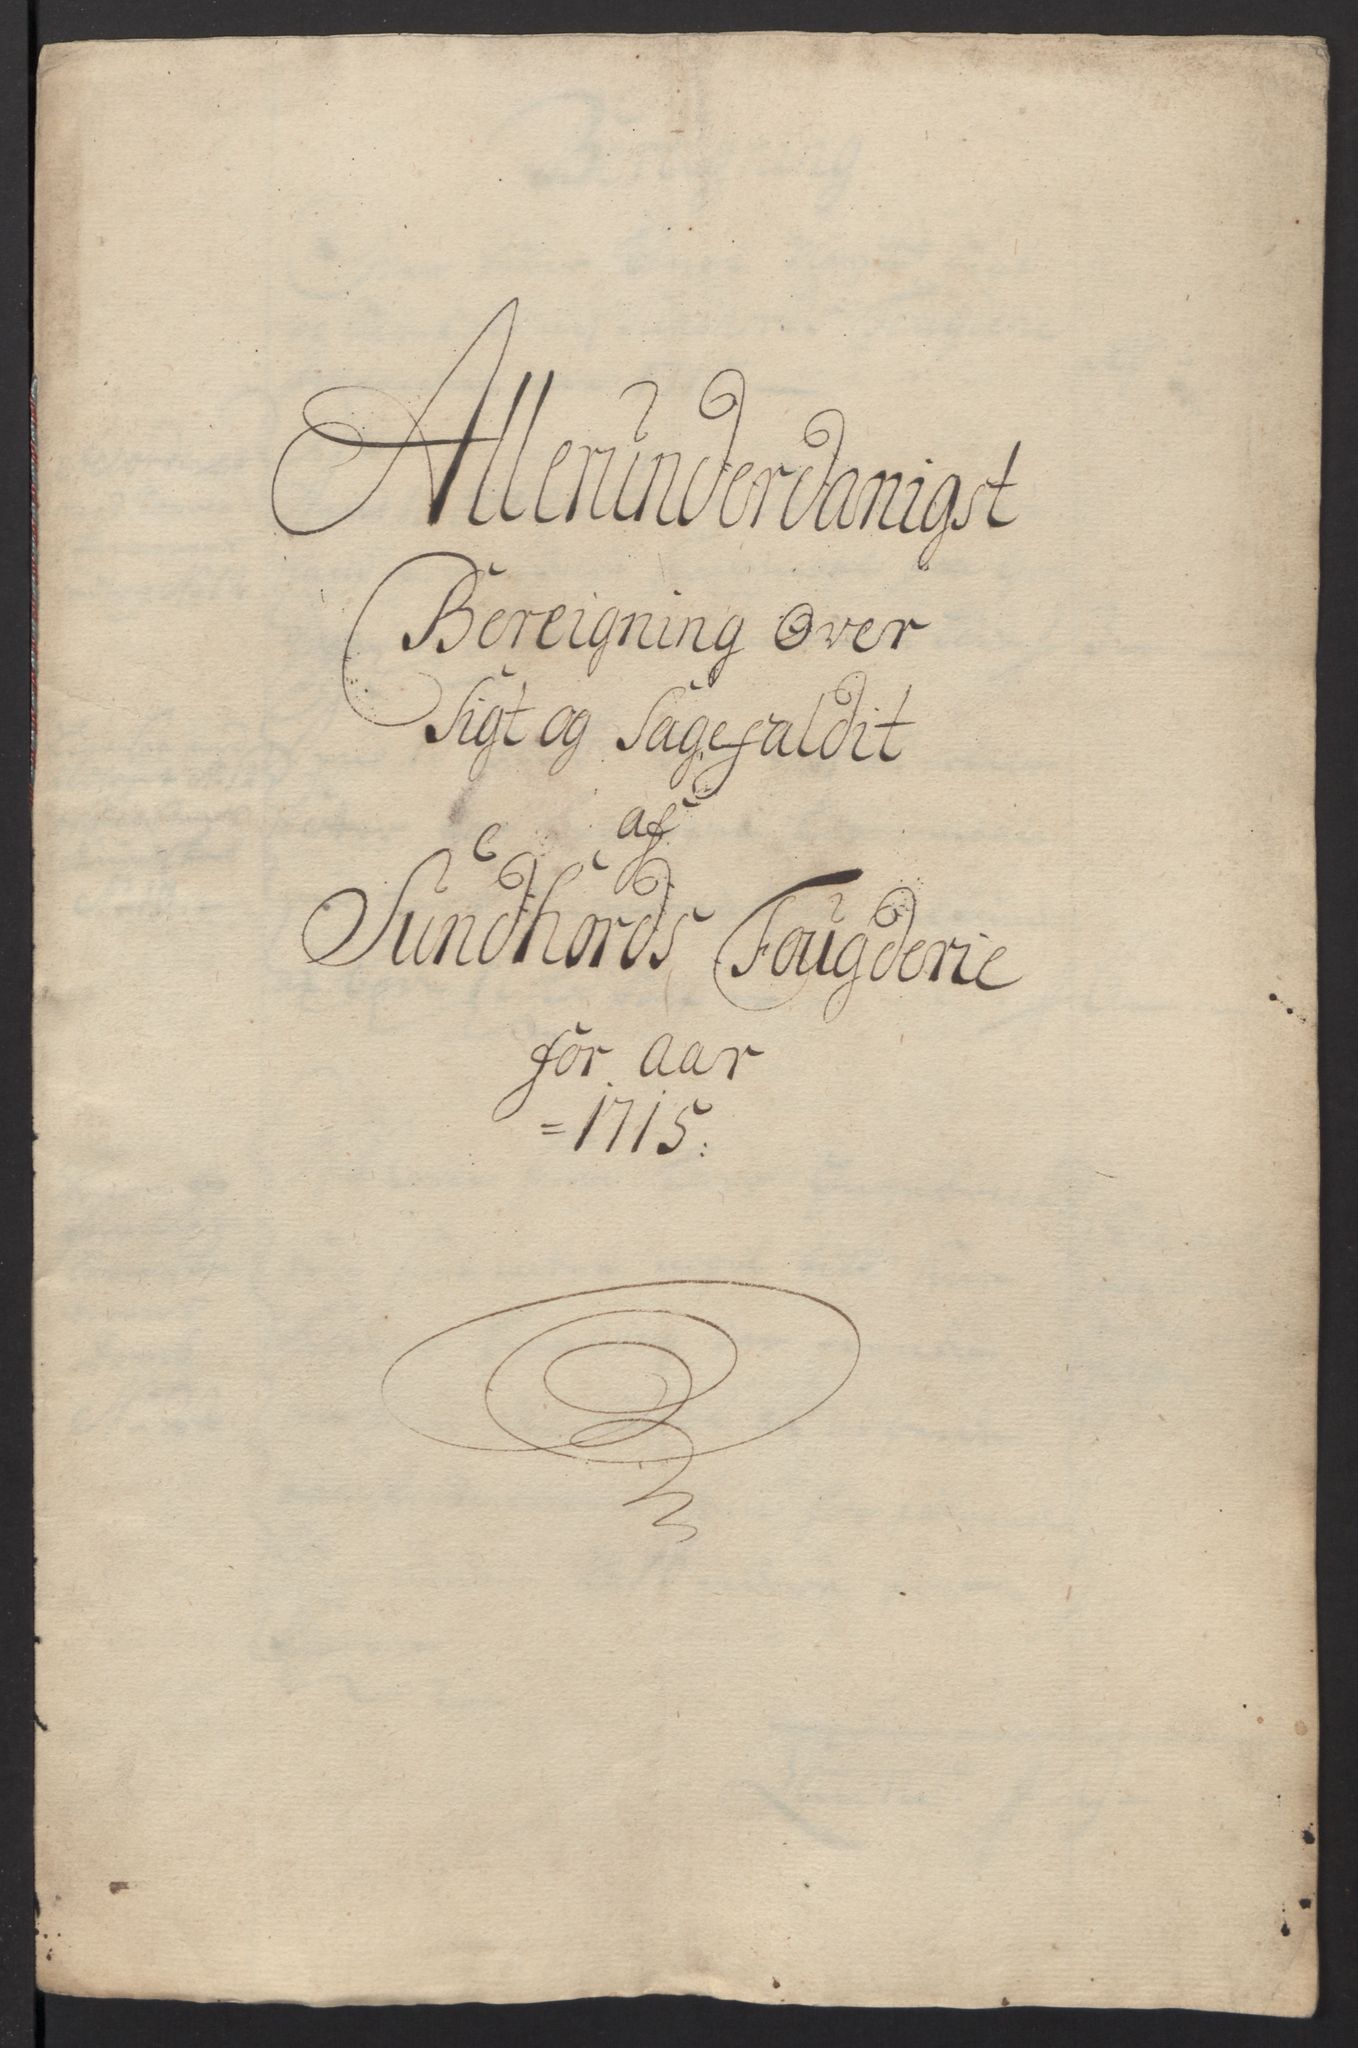 Allerunderdanigst
Bereigning Over
Sigt og Sagefaldit
af
Sundhords Fougderie
for Aar
=1715: